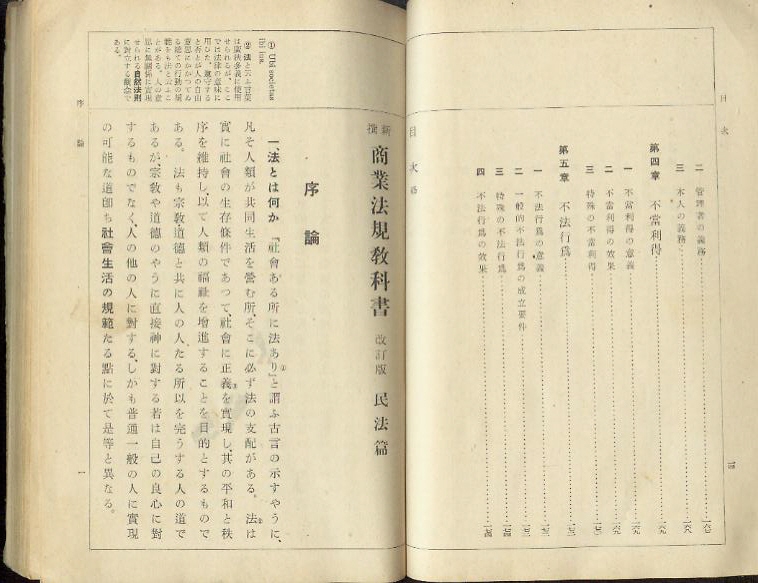 目次
二 管理者の義務
三 本人の義務
第四章 不當利得
一 不當利得の意義
二 不當利得の效果
三 特殊の不當利得
第五章 不法行爲
一 不法行爲の意義
二 一般的不法行爲の成立要件
三 特殊の不法行爲
四 不法行爲の效果
目次
新撰 商業法規敎科書 改訂版 民法篇
序論
一、法とは何か 『社會ある所に法あり』①と謂ふ古言の示すやうに、
凡そ人類が共同生活を營む所、そこに必ず法の支配がある。法②は
實に社會の生存條件であつて、社會に正義を實現し、其の平和と秩
序を維持し、以て人類の福祉を增進することを目的とするもので
ある。法も宗敎道德と共に人の人たる所以を完うする人の道で
あるが、宗敎や道德のやうに直接神に對する若は自己の良心に對
するものでなく、人の他の人に對する、しかも普通一般の人に實現
の可能な道卽ち社會生活の規範たる點に於て是等と異なる。
① Ubi societas
ibi ius.
② 法と云ふ言葉
は廣狹多義に使用
せられるが、ここ
では法律の意味に
用ひた。遵守する
と否とが人の自由
意思にかかつてゐ
る總ての行動の規
範をも法と云ふこ
とがある。人の意
思に無關係に實現
せられる自然法則
に對立する觀念で
ある。
序論
一